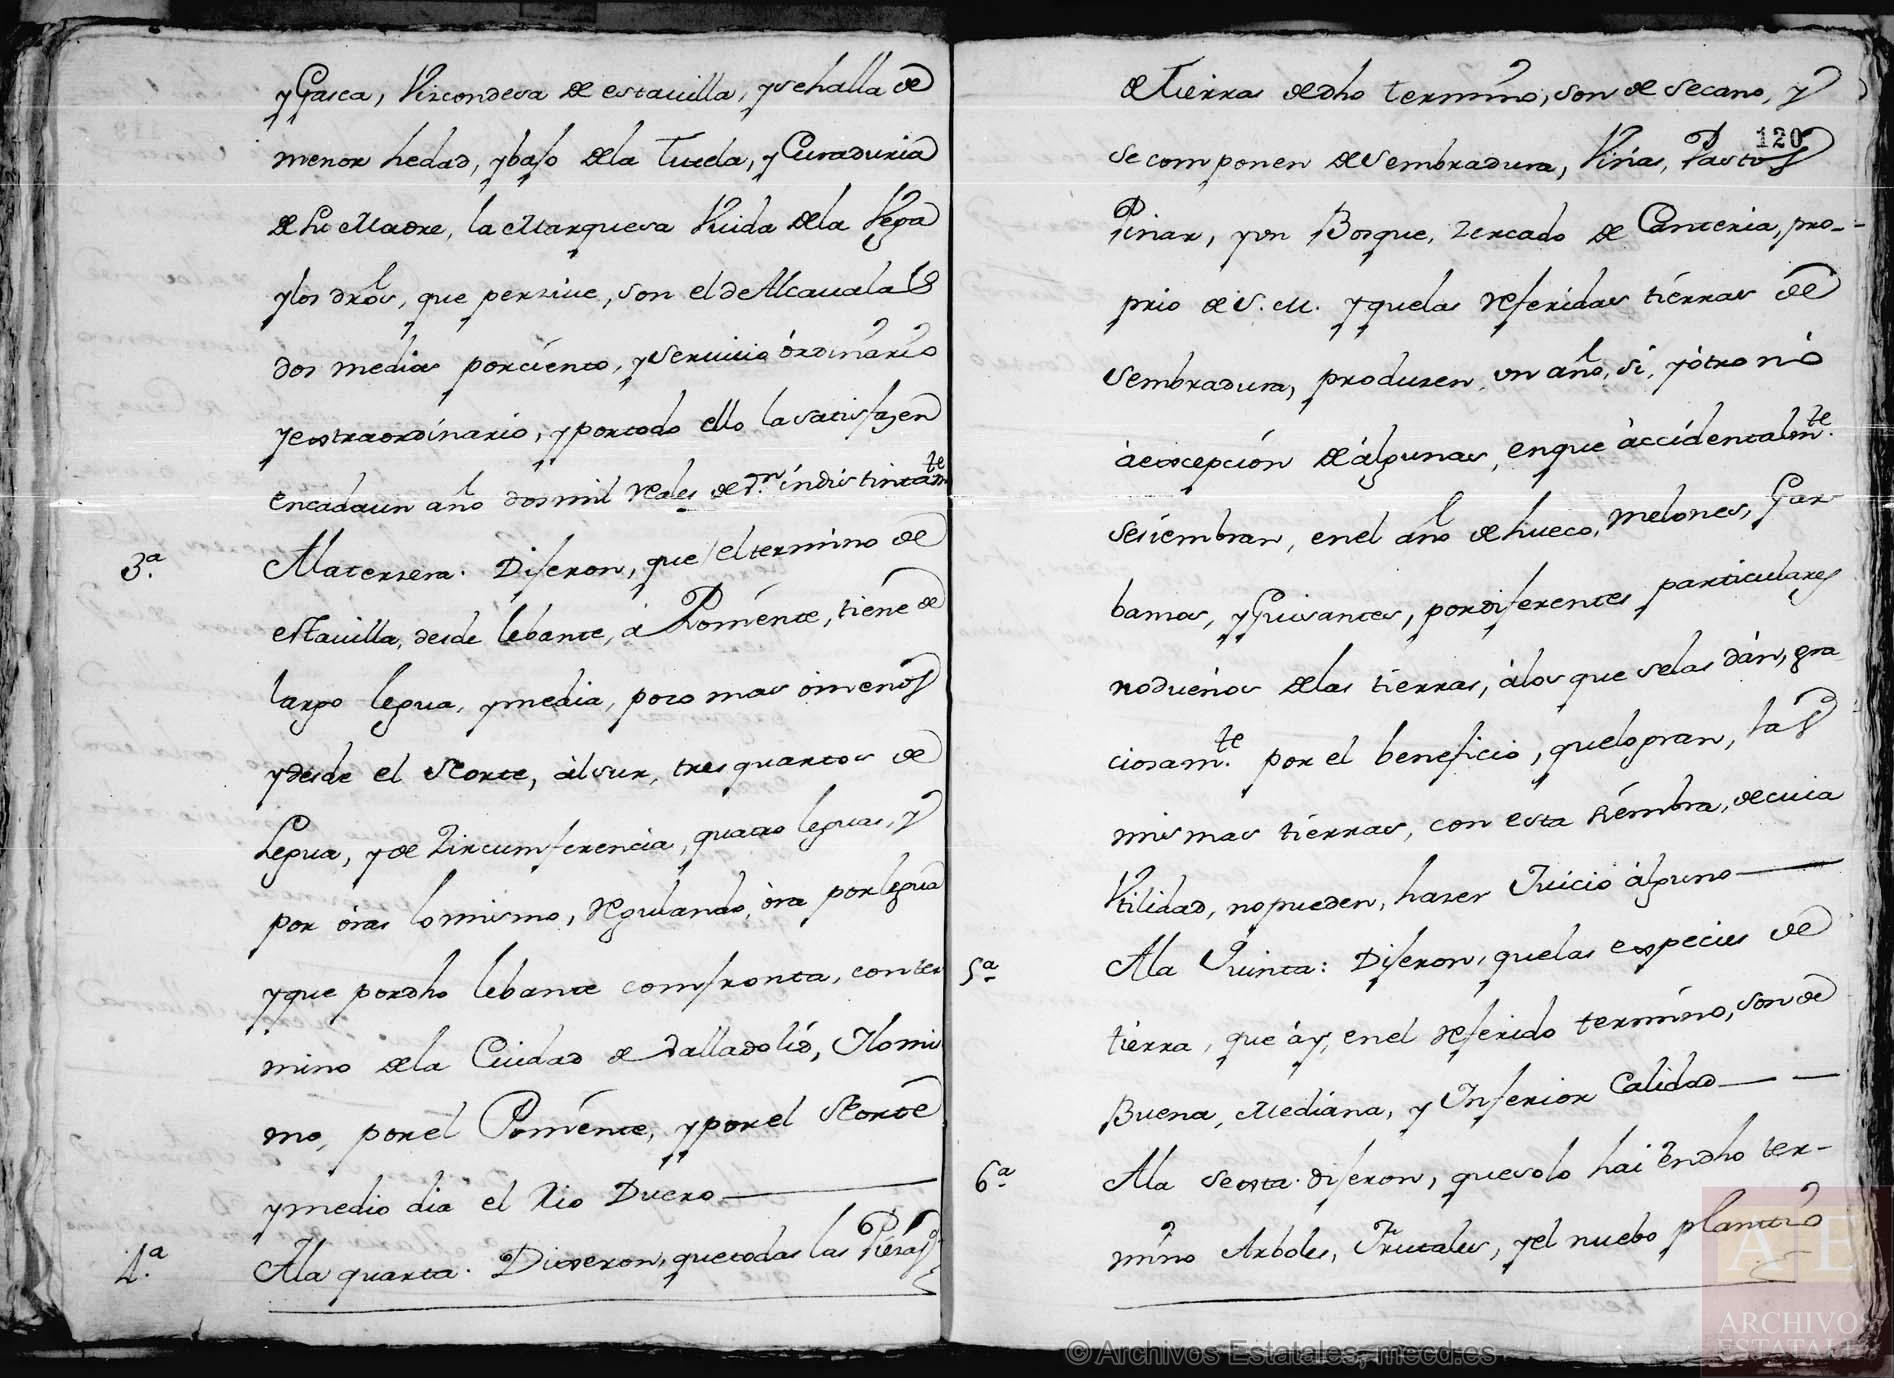 y Gasca, Vizcondesa de estauilla, y se halla de
menor hedad, y bajo de la Tutela, y Curaduria
de su Madre, la Marquesa Viuda de la Vega
y los dros, que perziue, son el de Alcauala
dos medias por ciento, y Seruicio órdinario
y extraordinario, y por todo ello la satisfazen
en cada un año dos mil reales de vn indistintamte
3.a A la tersera. Dijeron, que el termino de
estauilla, desde lebante, á Poniente, tiene de
largo legua, y media, poco mas ó menos
y desde el Norte, àl sur, tres quartos de
Legua, y de Zircumferencia, quatro leguas, y
por óras lo mismo, regulando, óra por legua
y que por dho lebante comfronta, con ter
mino de la Ciudad de Valladolid, Ylo mis
mo, por el Poniente, y por el Norte
y medio dia el Rio Duero
4.a A la quarta. Dixeron, que todas las Piezas
120
de Tierras de dho termino, son de secano, y
se componen de Sembradura, Viñas, Pastos
Pinar, y vn Bosque, zercado de Canteria, pro-
prio de S. M. y que las referidas tierras de
Sembradura, produzen, vn año, si, y ótro nó
àexcepción de álgunas, en que àccidentalmte
se siembran, en el año de hueco, melones, Gar
banzos, y Guisantes, por diferentes particulares
no dueños de las tierras, àlos que se las dán, gra
ciosamte por el beneficio, que logran, las
mismas tierras, con esta siémbra, de cuia
Vtilidad, no pueden, hazer Juicio álguno
5.a A la Quinta: Dijeron, que las especies de
tierra, que áy, en el referido termino, son de
Buena, Mediana, y Ynferior Calidad
6.a A la Sexta. dijeron, que solo hai en dho ter-
mino Arboles, Frutales, y el nuebo plantio
© Archivos Estatales, mecd.es
AE
ARCHIVOS
ESTATALES